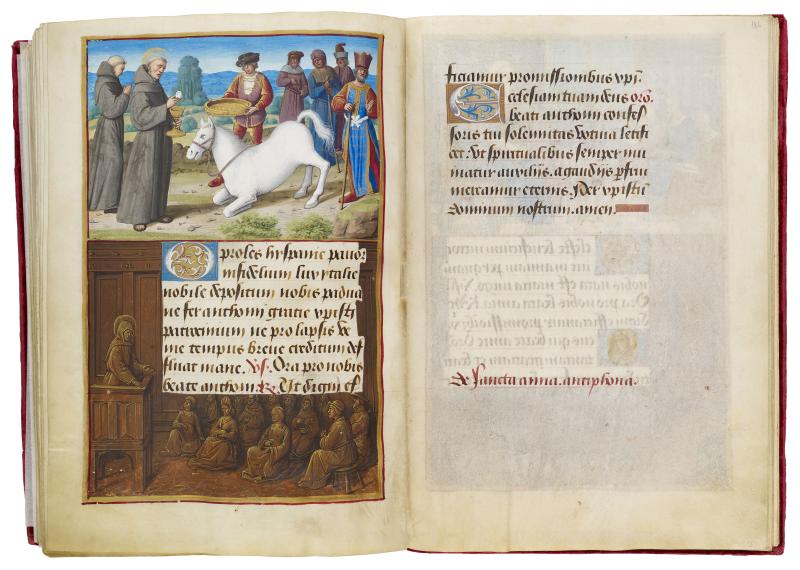 O proles hyspanie pavor
infidelium lux ytalie
nobile depositum nobis padua
ne fer anthoni gratie xpisti
patrocinium ne prolapsis ve
nie tempus breve creditum def
fluat inane. Vs. Ora pro nobis
beate anthoni. R. Ut digni ef
ficiamur promissionibus xpi.
Ecclesiam tuam deus oro.
beati anthonii confes
soris tui solemnitas votiva letifi
cet. Ut spiritualibus semper mu
niatur auxilijs. & gaudijs perfrui
mereamur eternis. Per xpistu
dominum nostrum. amen.
De sancta anna. antiphona.